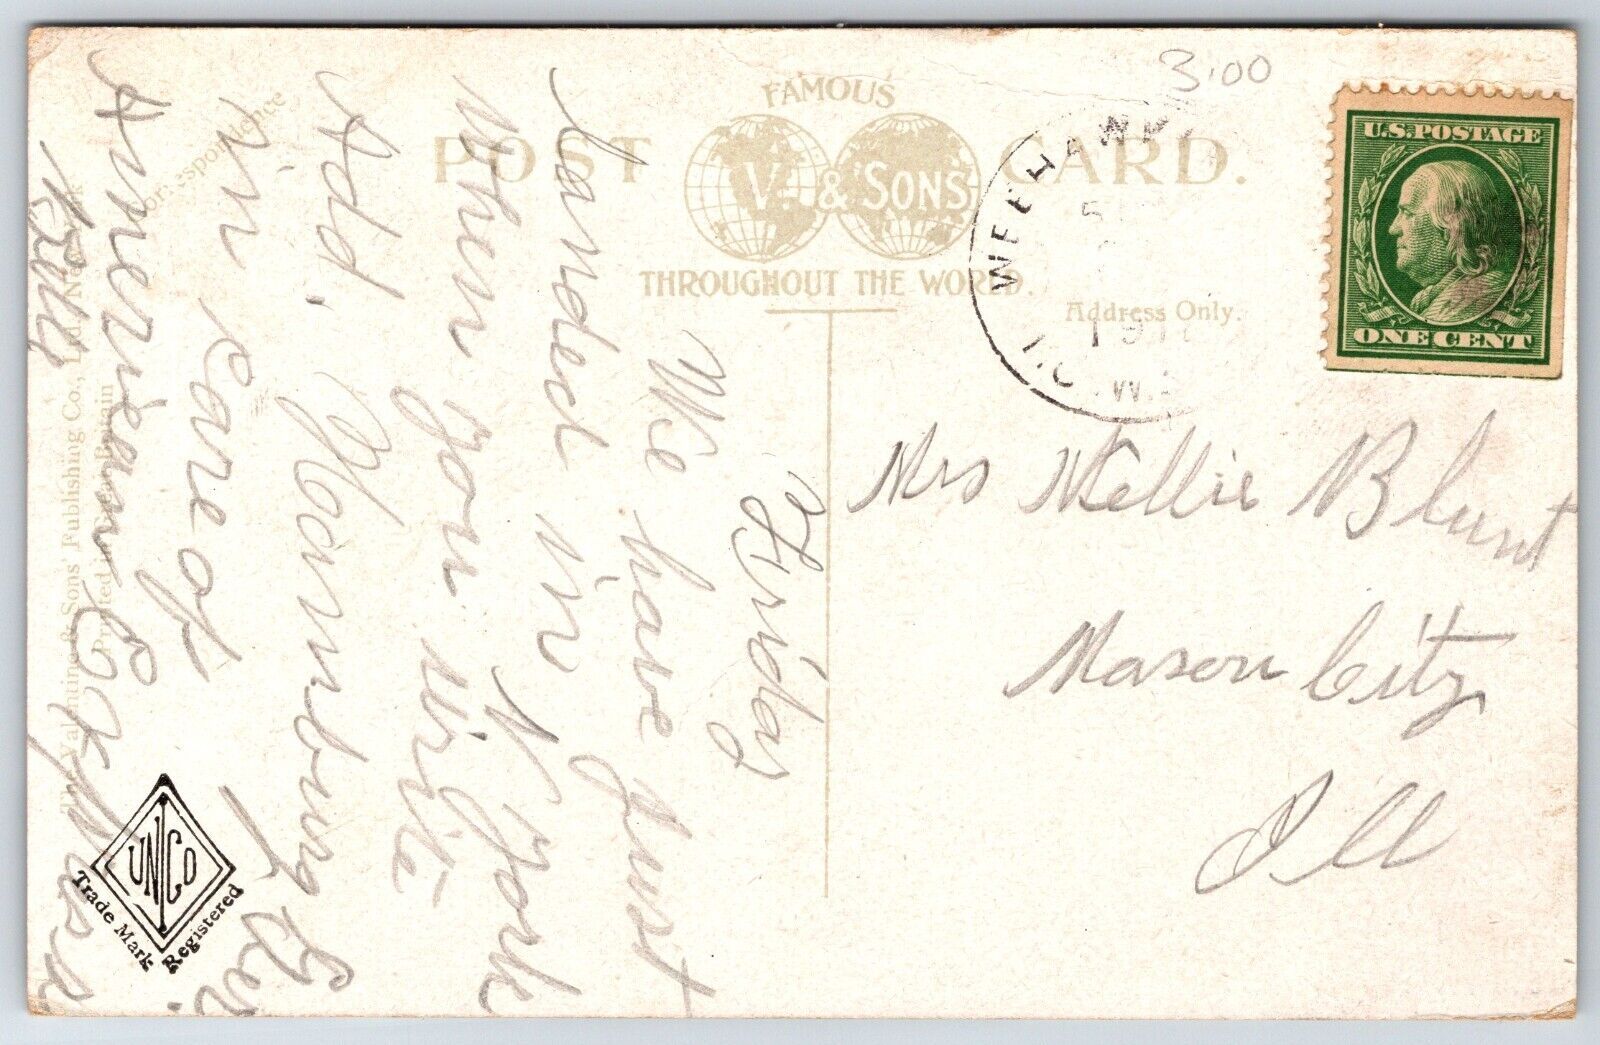 3.00
FAMOUS
POST CARD.
V. & SONS
THROUGHOUT THE WORLD.
Correspondence
Address Only.
WEEHAWK
1911
U.S. POSTAGE
ONE CENT
Mrs Nellie Blunt
Mason City
Ill
Friday
We have just
landed in N York
when you write
Add. Hamburg Ger.
in care of
American Express
The Valentine & Sons' Publishing Co., Ltd., New York
Printed in Great Britain
UNCO
Trade Mark
Registered